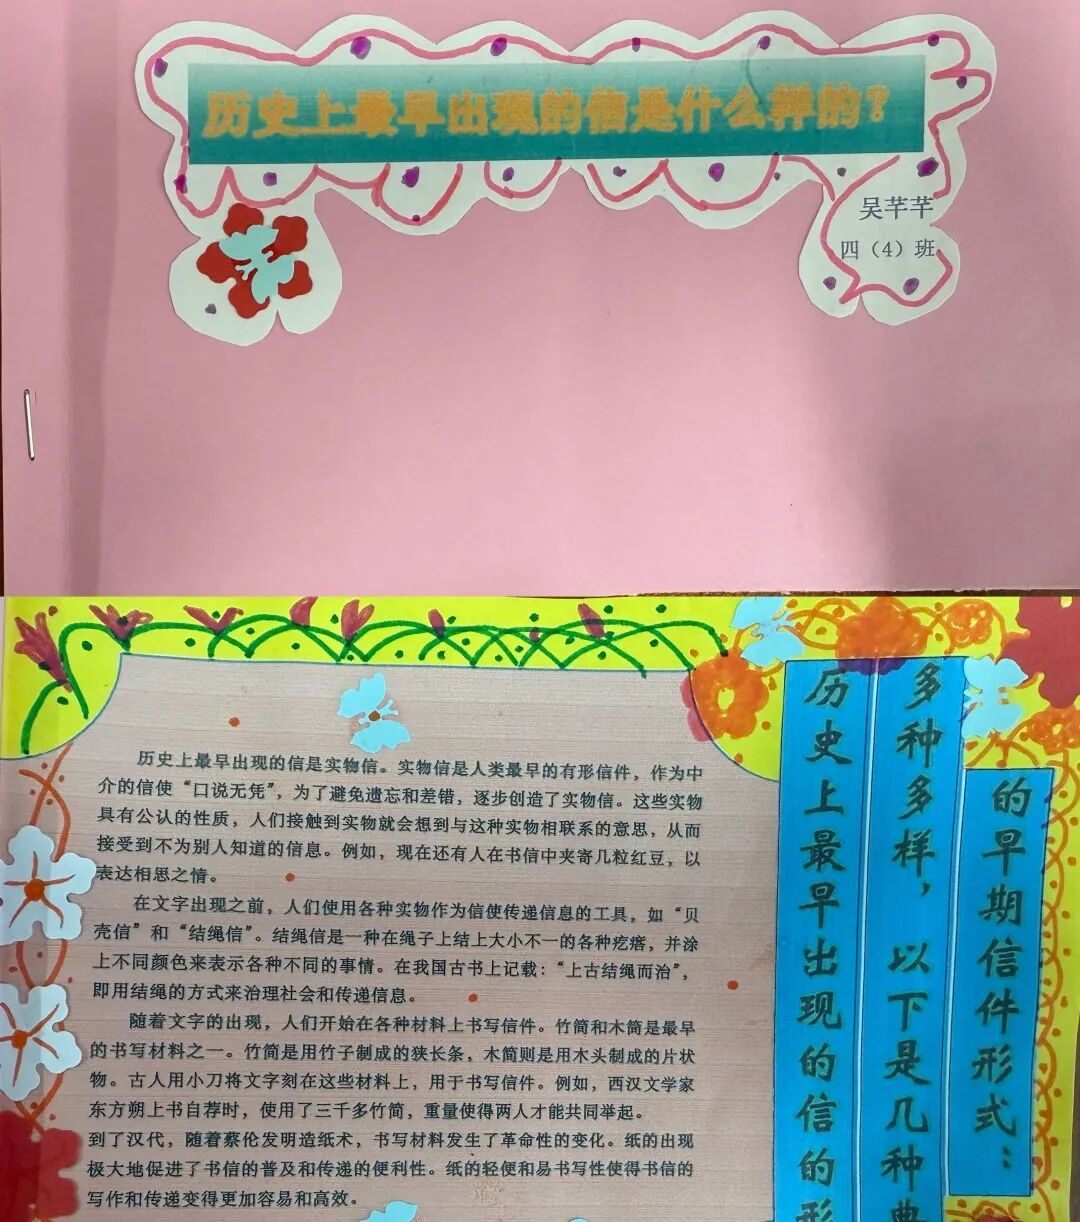 历史上最早出现的信是什么样的？
吴芊芊
四（4）班
历史上最早出现的信是实物信。实物信是人类最早的有形信件，作为中
介的信使“口说无凭”，为了避免遗忘和差错，逐步创造了实物信。这些实物
具有公认的性质，人们接触到实物就会想到与这种实物相联系的意思，从而
接受到不为别人知道的信息。例如，现在还有人在书信中夹寄几粒红豆，以
表达相思之情。
在文字出现之前，人们使用各种实物作为信使传递信息的工具，如“贝
壳信”和“结绳信”。结绳信是一种在绳子上结上大小不一的各种疙瘩，并涂
上不同颜色来表示各种不同的事情。在我国古书上记载：“上古结绳而治”，
即用结绳的方式来治理社会和传递信息。
随着文字的出现，人们开始在各种材料上书写信件。竹简和木简是最早
的书写材料之一。竹简是用竹子制成的狭长条，木简则是用木头制成的片状
物。古人用小刀将文字刻在这些材料上，用于书写信件。例如，西汉文学家
东方朔上书自荐时，使用了三千多竹简，重量使得两人才能共同举起。
到了汉代，随着蔡伦发明造纸术，书写材料发生了革命性的变化。纸的出现
极大地促进了书信的普及和传递的便利性。纸的轻便和易书写性使得书信的
写作和传递变得更加容易和高效。
历史上最早出现的信的形
多种多样，以下是几种典
的早期信件形式：